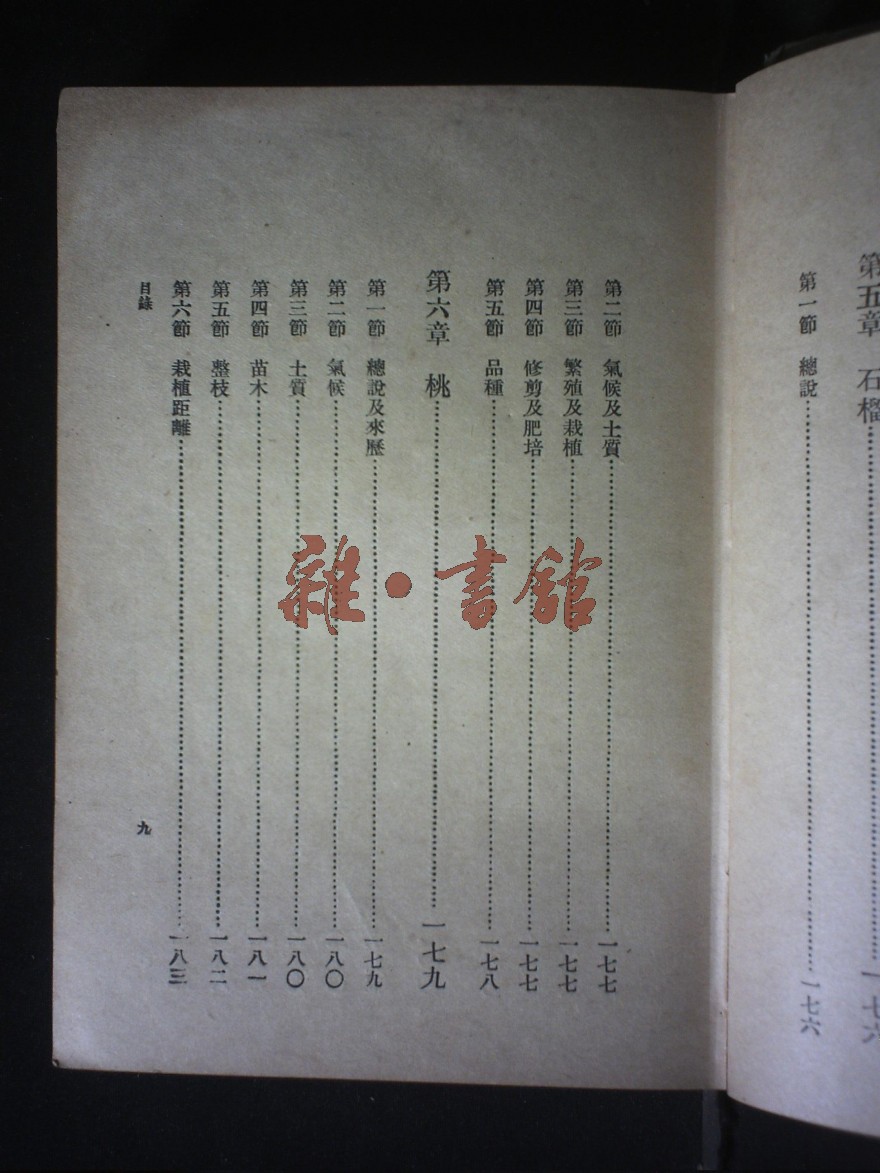 第五章 石榴……一七六
第一節 總說……一七六
第二節 氣候及土質……一七七
第三節 繁殖及栽植……一七七
第四節 修剪及肥培……一七七
第五節 品種……一七八
第六章 桃……一七九
第一節 總說及來歷……一七九
第二節 氣候……一八〇
第三節 土質……一八〇
第四節 苗木……一八一
第五節 整枝……一八二
第六節 栽植距離……一八三
目錄
九
雜·書館